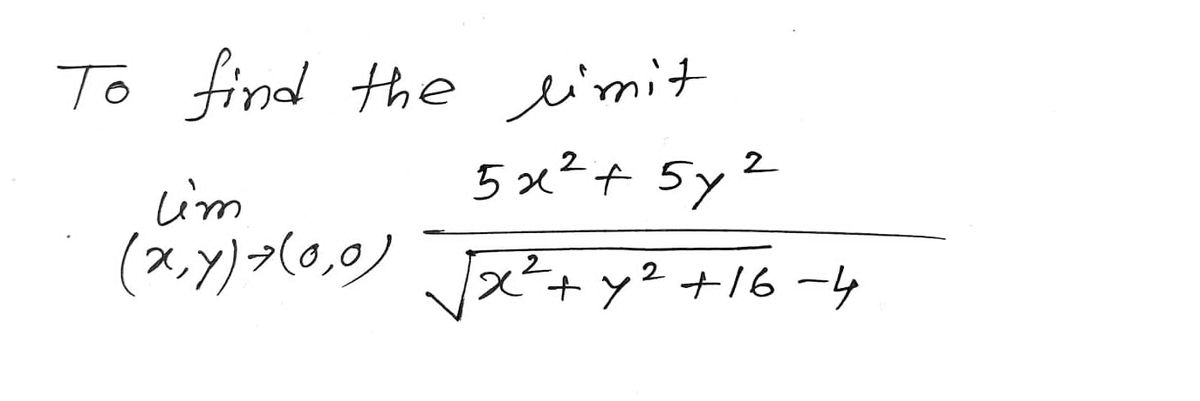 To find the limit
lim (x,y)→(0,0) 5x² + 5y² / √x² + y² + 16 - 4